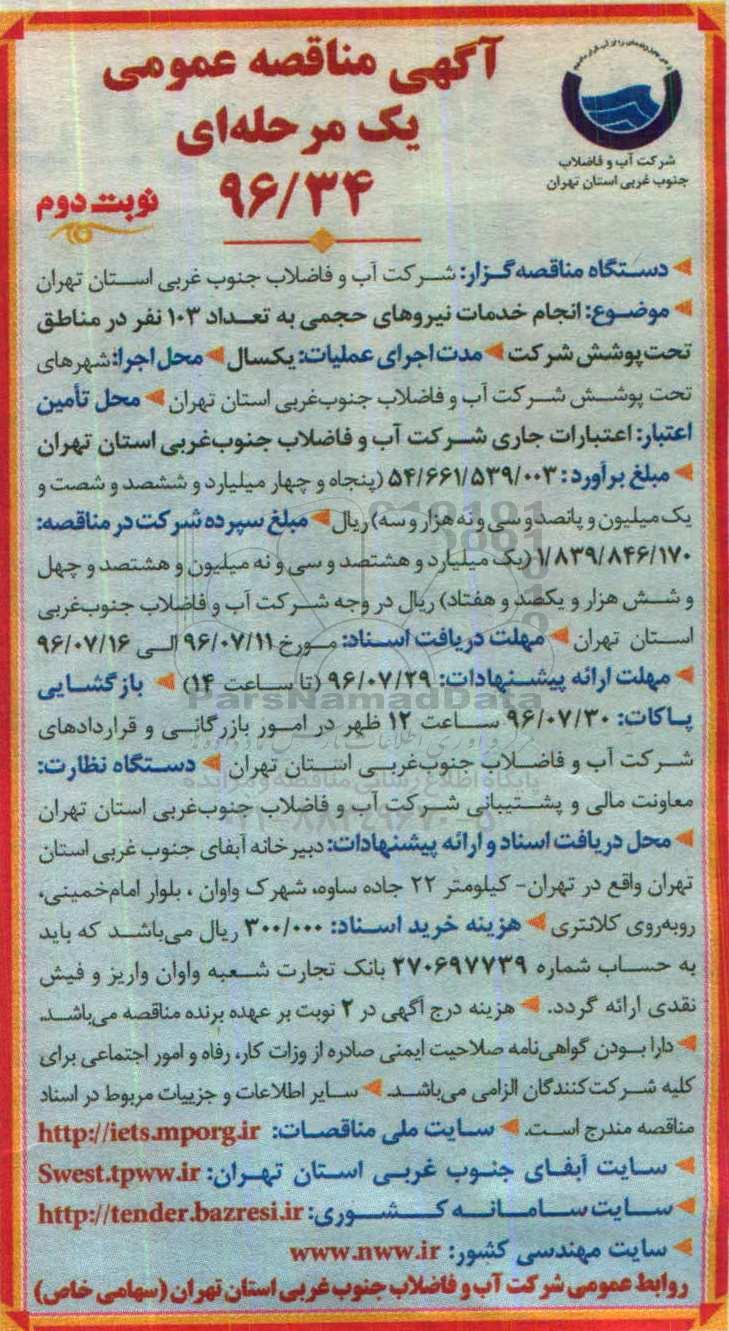 آگهی مناقصه عمومی
یک مرحله‌ای
۹۶/۳۴
نوبت دوم
شرکت آب و فاضلاب
جنوب غربی استان تهران
دستگاه مناقصه‌گزار: شرکت آب و فاضلاب جنوب غربی استان تهران
موضوع: انجام خدمات نیروهای حجمی به تعداد ۱۰۳ نفر در مناطق
تحت پوشش شرکت مدت اجرای عملیات: یکسال محل اجرا: شهرهای
تحت پوشش شرکت آب و فاضلاب جنوب‌غربی استان تهران محل تأمین
اعتبار: اعتبارات جاری شرکت آب و فاضلاب جنوب‌غربی استان تهران
مبلغ برآورد: ۵۴/۶۶۱/۵۳۹/۰۰۳ (پنجاه و چهار میلیارد و ششصد و شصت و
یک میلیون و پانصد و سی و نه هزار و سه) ریال مبلغ سپرده شرکت در مناقصه:
۱/۸۳۹/۸۴۶/۱۷۰ (یک میلیارد و هشتصد و سی و نه میلیون و هشتصد و چهل
و شش هزار و یکصد و هفتاد) ریال در وجه شرکت آب و فاضلاب جنوب‌غربی
استان تهران مهلت دریافت اسناد: مورخ ۹۶/۰۷/۱۱ الی ۹۶/۰۷/۱۶
مهلت ارائه پیشنهادات: ۹۶/۰۷/۲۹ (تا ساعت ۱۴) بازگشایی
پاکات: ۹۶/۰۷/۳۰ ساعت ۱۲ ظهر در امور بازرگانی و قراردادهای
شرکت آب و فاضلاب جنوب‌غربی استان تهران دستگاه نظارت:
معاونت مالی و پشتیبانی شرکت آب و فاضلاب جنوب‌غربی استان تهران
محل دریافت اسناد و ارائه پیشنهادات: دبیرخانه آبفای جنوب غربی استان
تهران واقع در تهران- کیلومتر ۲۲ جاده ساوه، شهرک واوان ، بلوار امام‌خمینی،
روبه‌روی کلانتری هزینه خرید اسناد: ۳۰۰/۰۰۰ ریال می‌باشد که باید
به حساب شماره ۲۷۰۶۹۷۷۳۹ بانک تجارت شعبه واوان واریز و فیش
نقدی ارائه گردد. هزینه درج آگهی در ۲ نوبت بر عهده برنده مناقصه می‌باشد.
دارا بودن گواهی‌نامه صلاحیت ایمنی صادره از وزات کار، رفاه و امور اجتماعی برای
کلیه شرکت‌کنندگان الزامی می‌باشد. سایر اطلاعات و جزییات مربوط در اسناد
مناقصه مندرج است. سایت ملی مناقصات: http://iets.mporg.ir
سایت آبفای جنوب غربی استان تهران: Swest.tpww.ir
سایت سامانه کشوری: http://tender.bazresi.ir
سایت مهندسی کشور: www.nww.ir
روابط عمومی شرکت آب و فاضلاب جنوب غربی استان تهران (سهامی خاص)
ParsNamadData